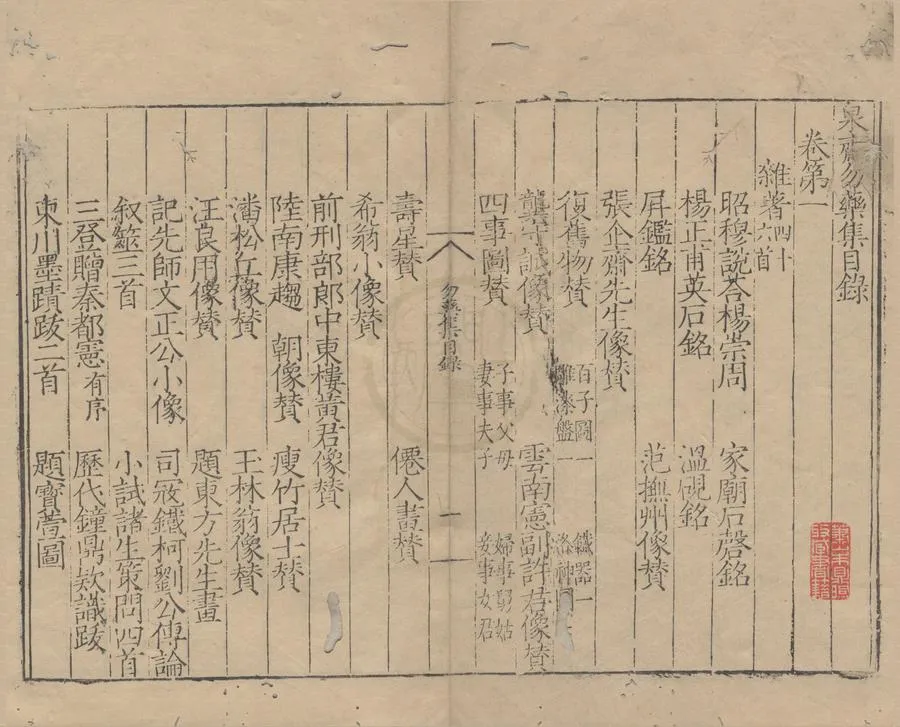 泉齋勿藥集目錄
卷第一
雜著四十六首
昭穆說荅楊崇周 家廟石磬銘
楊正甫英石銘 溫硯銘
屏鑑銘 范撫州像賛
張企齋先生像賛
復舊物賛 百子圖一 雕漆盤一 鐵器一
龔守誠像賛 雲南憲副許君像賛
四事圖賛 子事父母 妻事夫子 婦事舅姑 妾事女君
勿藥集目錄 一
壽星賛 僊人畫賛
希翁小像賛
前刑部郎中東樓黃君像賛
陸南康趨 朝像賛 瘦竹居士賛
潘松丘像賛 玉林翁像賛
汪良用像賛 題東方先生畫
記先師文正公小像 司寇鐵柯劉公傳論
叙筮三首 小試諸生策問四首
三登贈秦都憲有序 歷代鐘鼎欵識跋
東川墨蹟跋二首 題寶薝圖